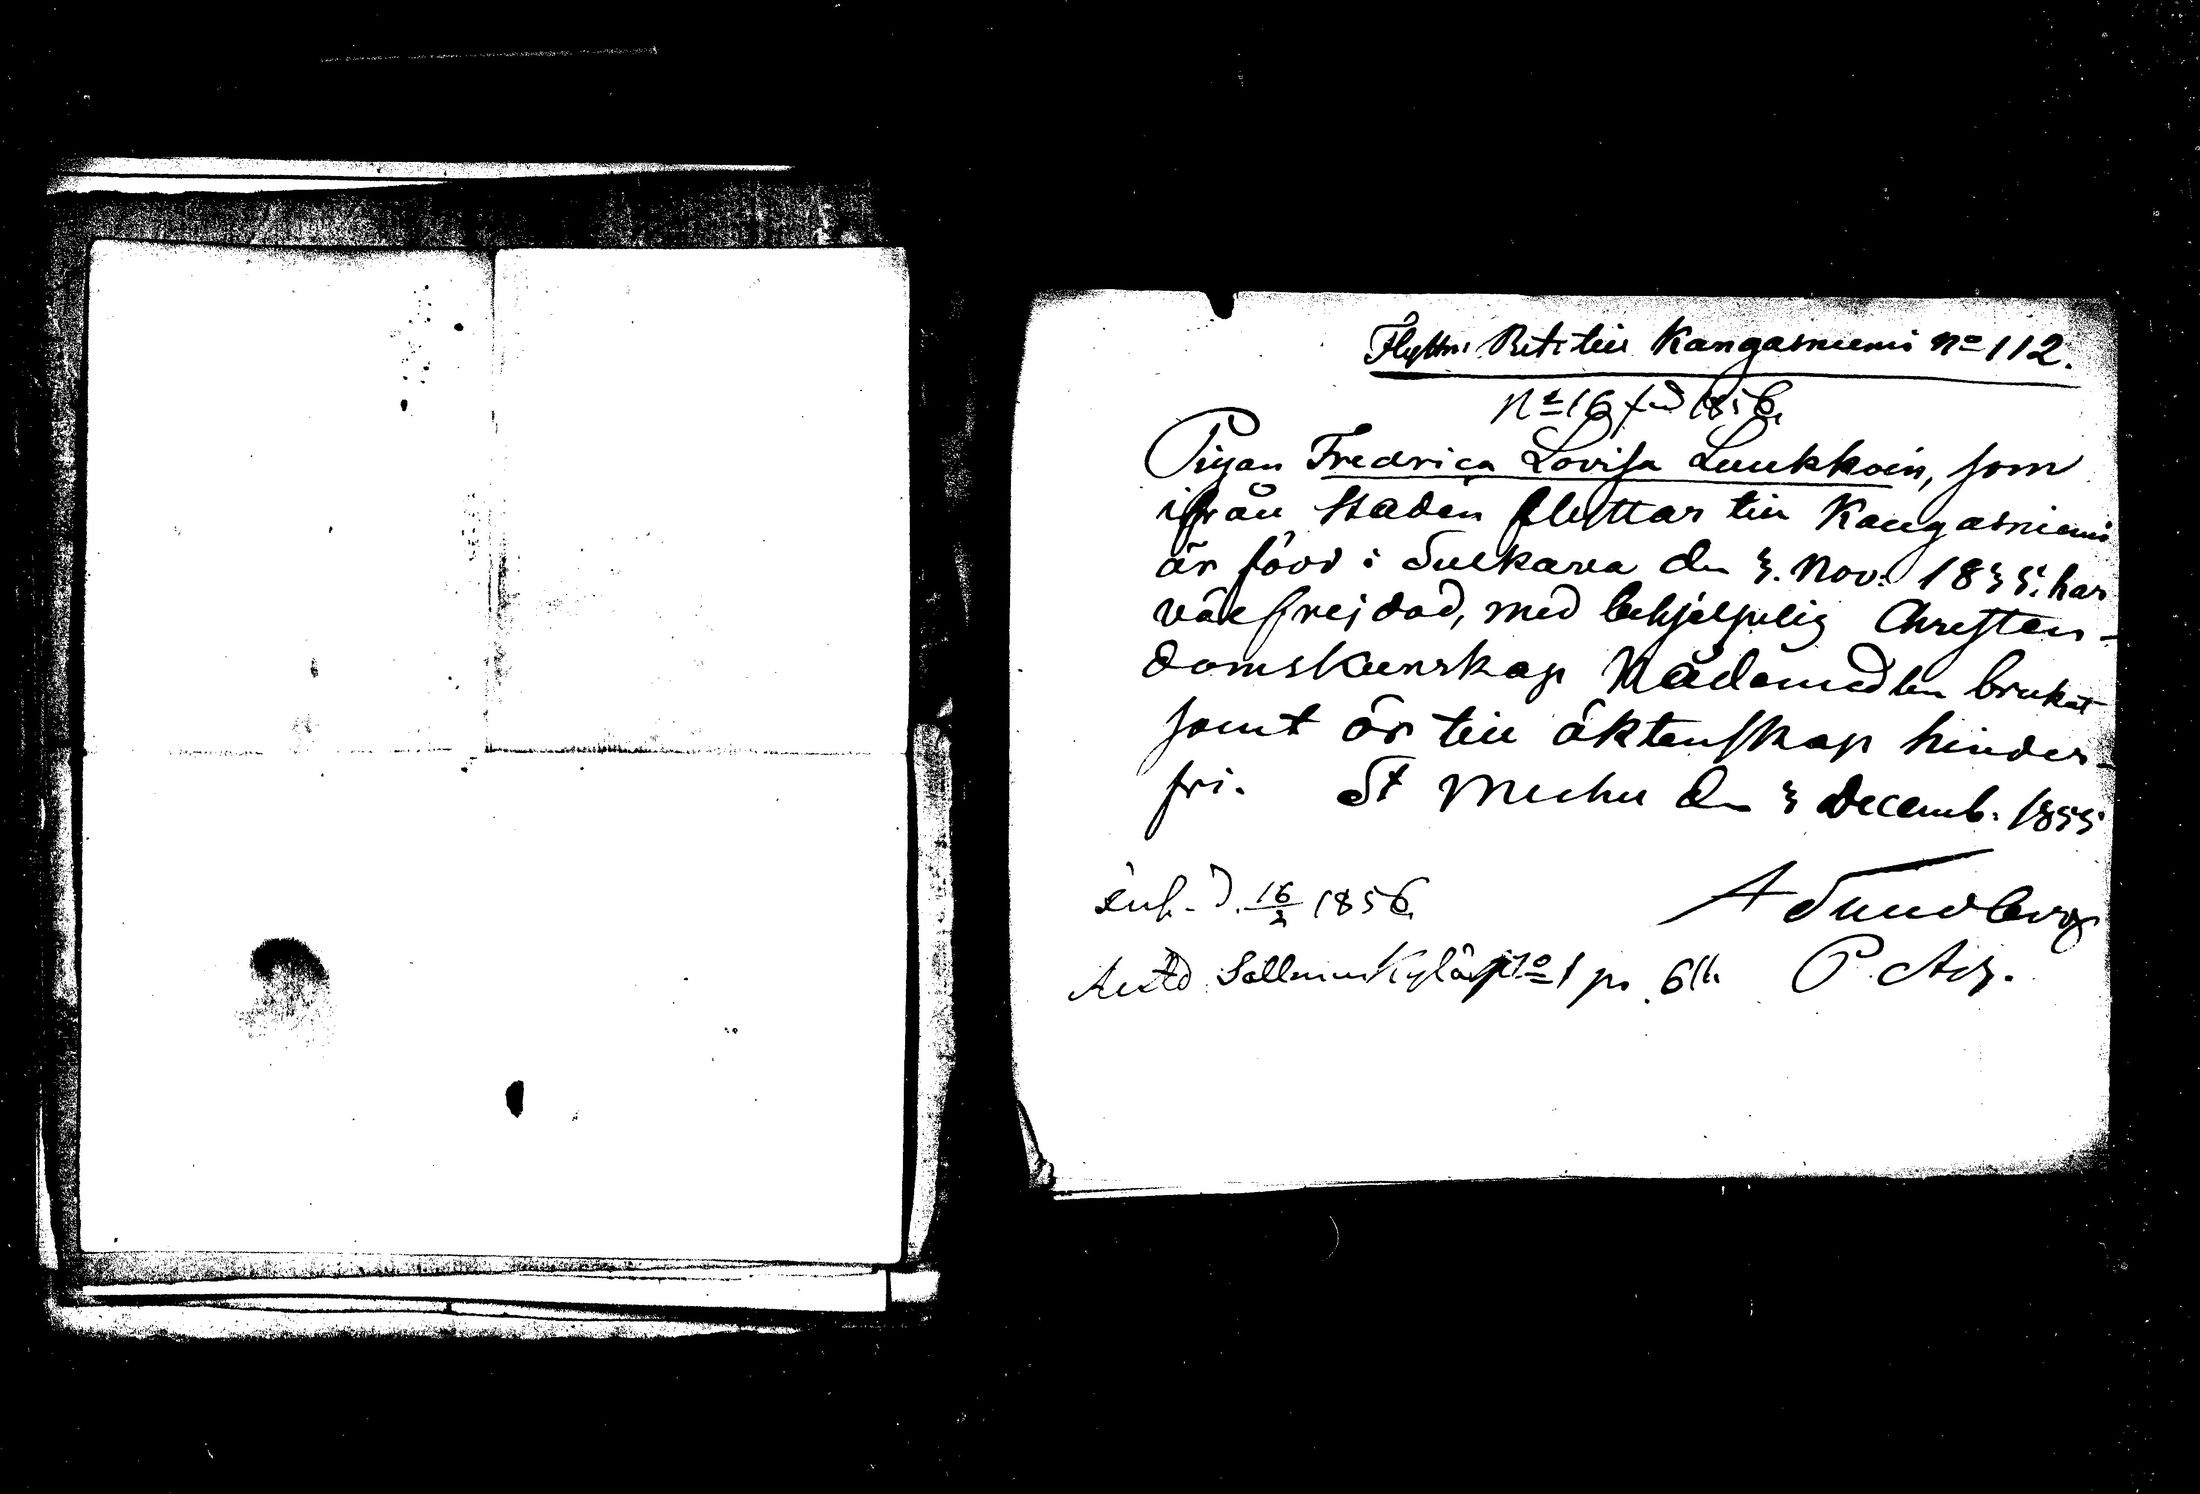 Flyttn. Bet. till Kangasniemi No 112.
No 16 f. d. 1856.
Pigan Fredrica Lovisa Luukkoin, som
ifrån staden flyttar till Kangasniemi
är född i Sulkava den 3. Nov. 1835. har
välfrejdad, med behjelpelig Christen-
domskunskap Nådemedlen brukat
samt är till äktenskap hinder-
fri. St Michel den 3 Decemb. 1855
A Sundberg
P. Adj.
d. 16/2 1856.
Kylä No 1 p.